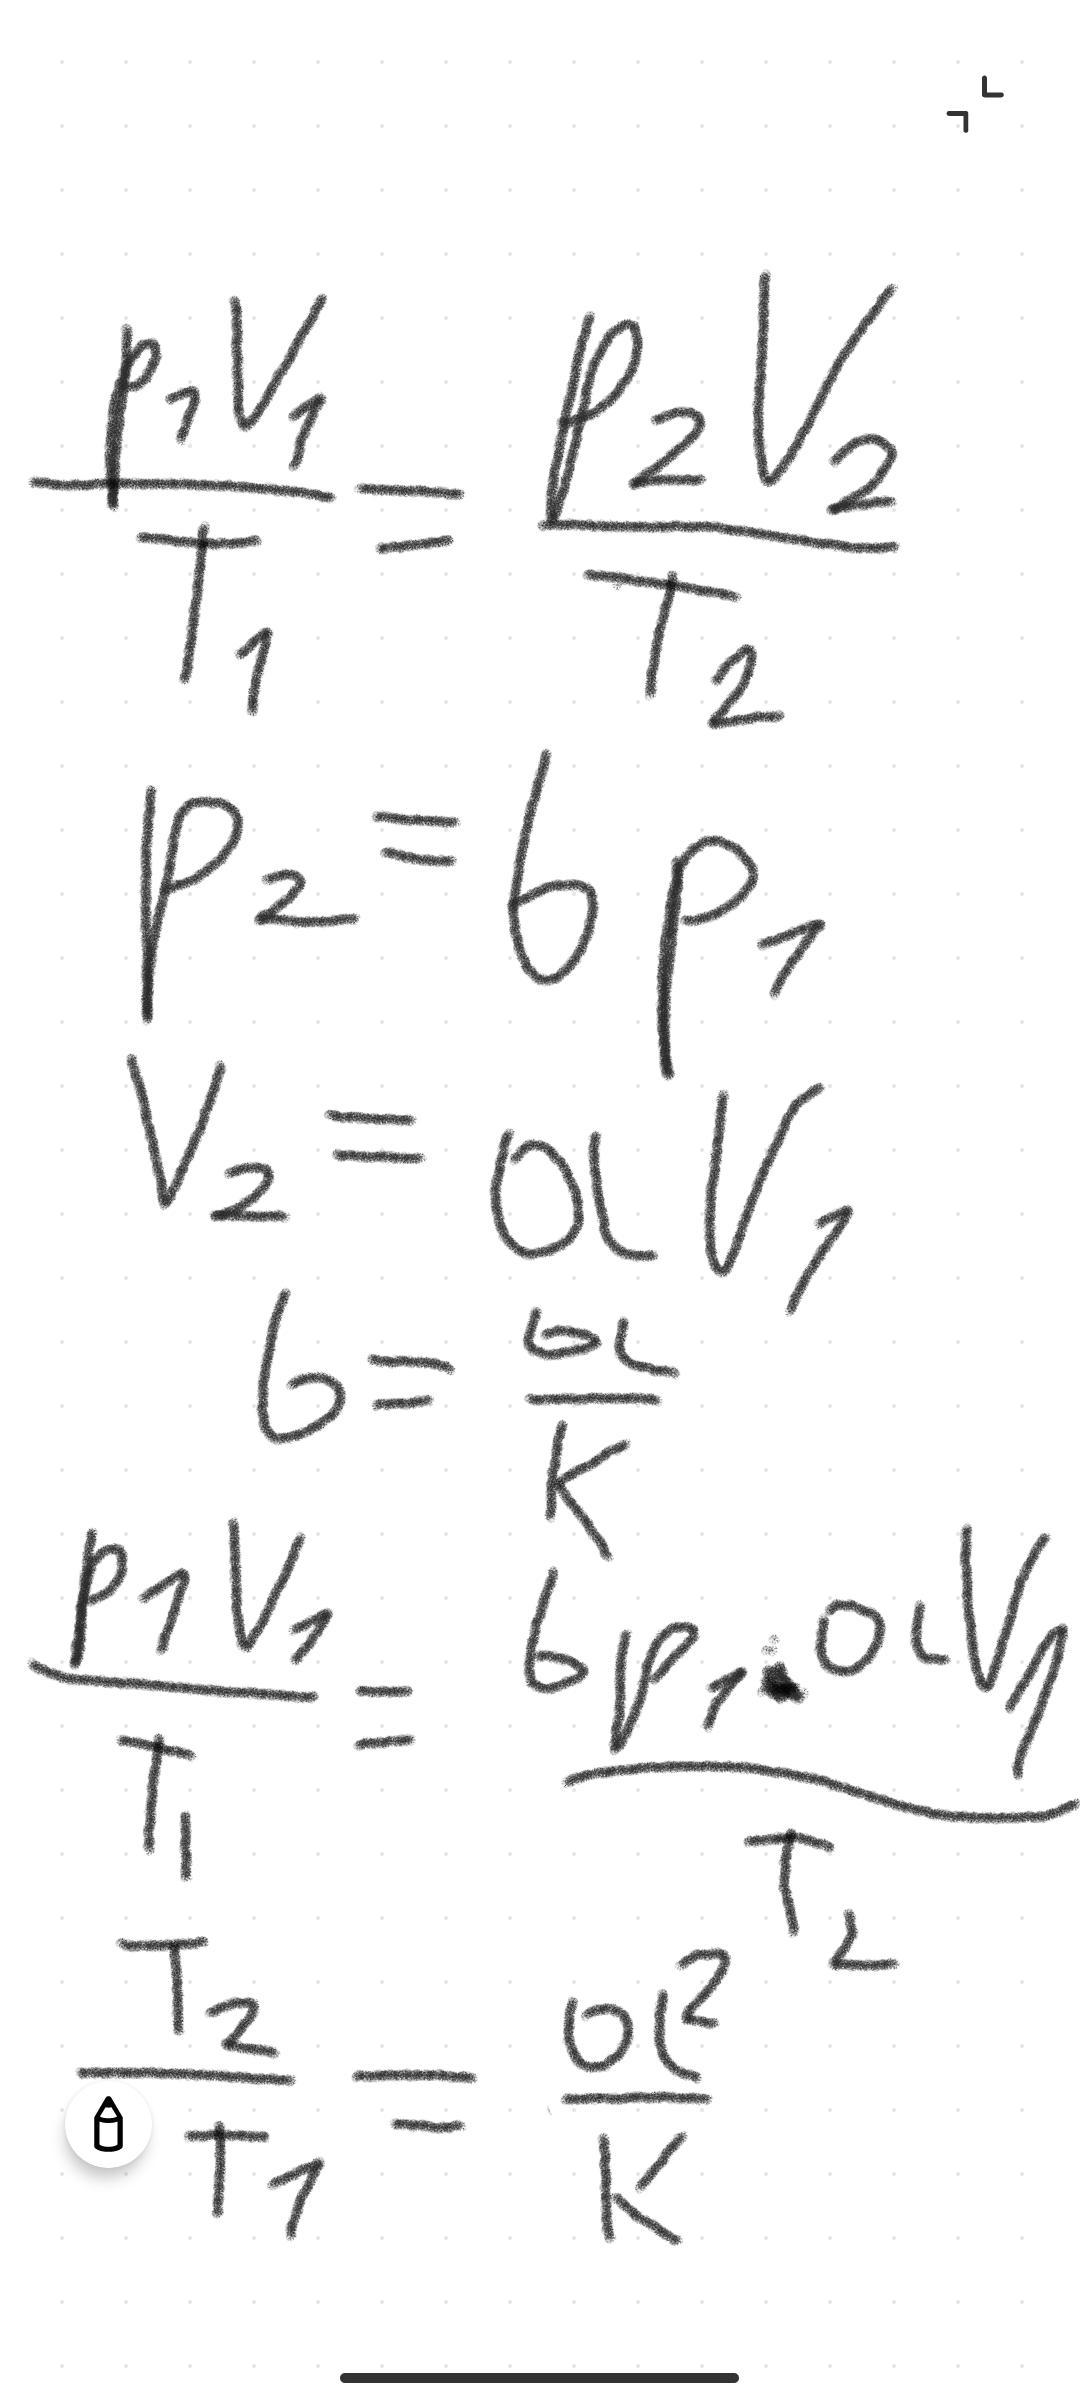 p₁V₁/T₁ = p₂V₂/T₂
p₂ = b p₁
V₂ = a V₁
b = a/K
p₁V₁/T₁ = b p₁ · a V₁/T₂
T₂/T₁ = a²/K